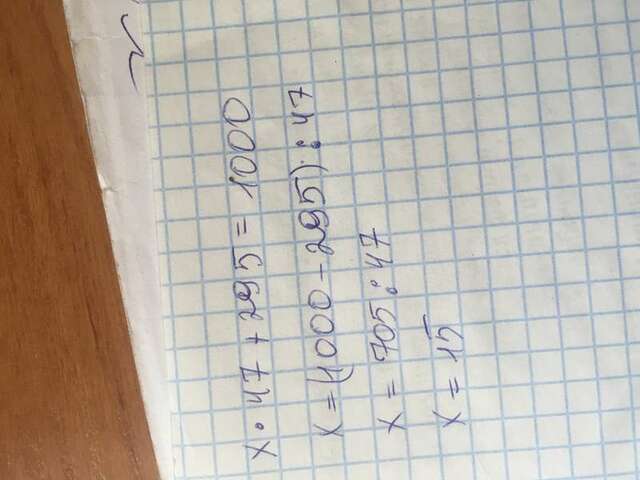 x · 47 + 295 = 1000
x = (1000 - 295) : 47
x = 705 : 47
x = 15